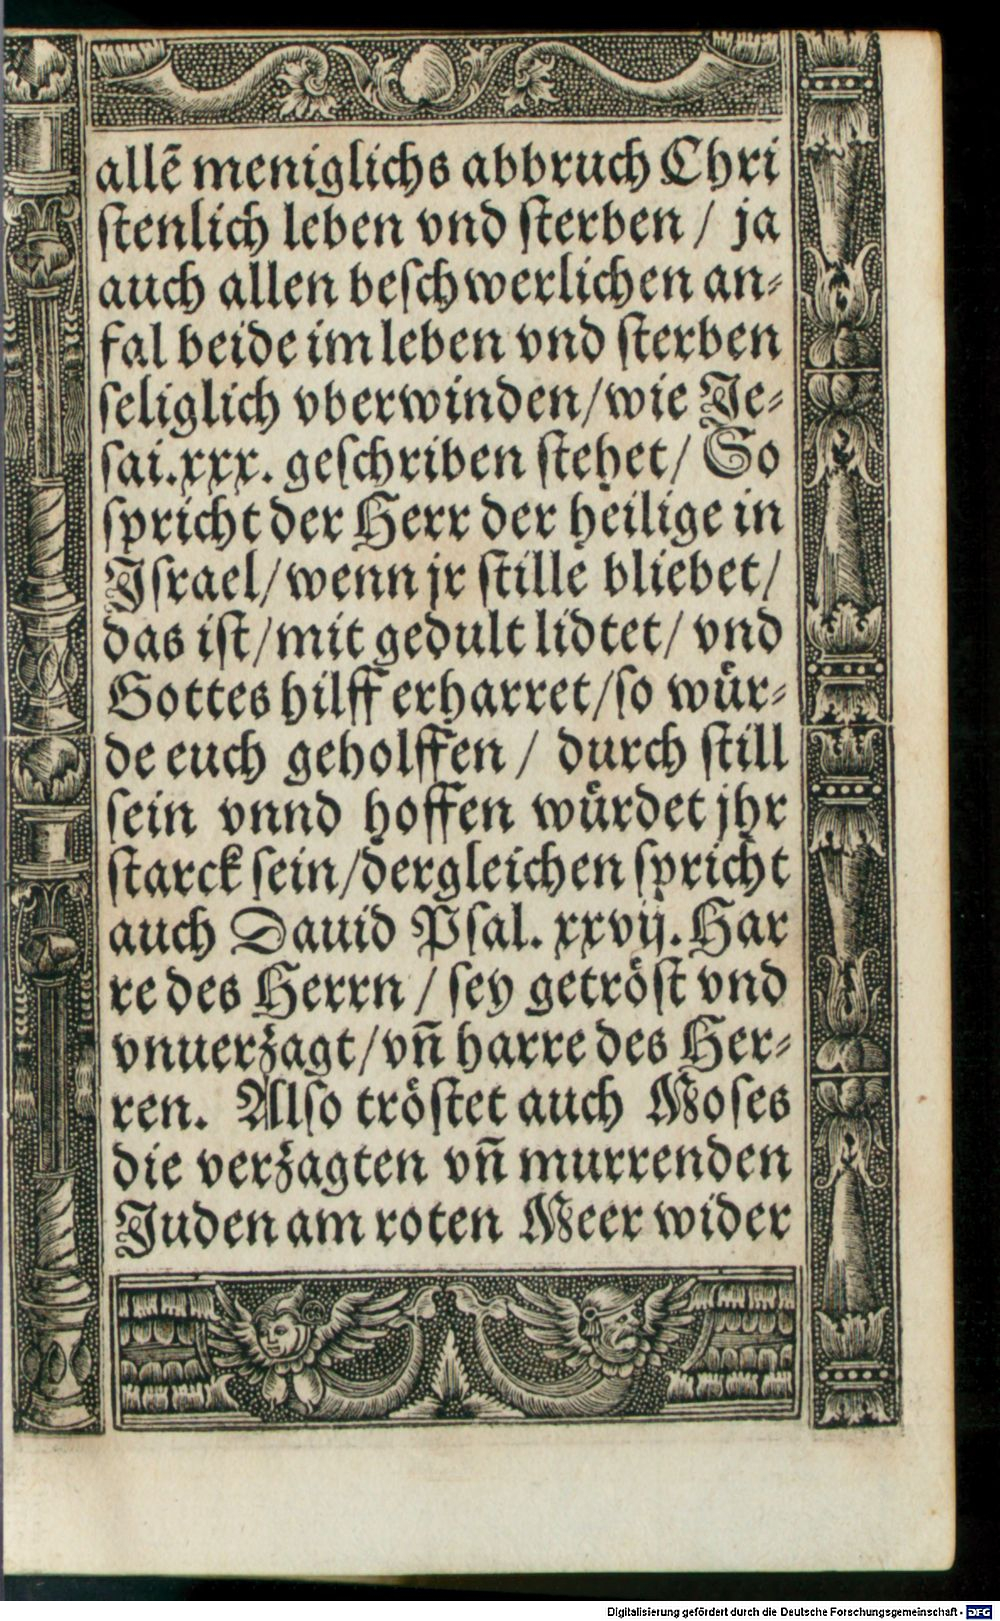 allē meniglichs abbruch Chri
stenlich leben vnd sterben / ja
auch allen beschwerlichen an⸗
fal beide im leben vnd sterben
seliglich vberwinden/wie Je⸗
sai.xxx. geschriben stehet/ So
spricht der Herr der heilige in
Israel/wenn jr stille bliebet/
das ist/mit gedult lidtet/ vnd
Gottes hilff erharret/so wür⸗
de euch geholffen / durch still
sein vnnd hoffen würdet jhr
starck sein/dergleichen spricht
auch Dauid Psal. xxvij. Har
re des Herrn / sey getröst vnd
vnuerzagt/vn̄ harre des Her⸗
ren. Also tröstet auch Moses
die verzagten vn̄ murrenden
Juden am roten Meer wider
Digitalisierung gefördert durch die Deutsche Forschungsgemeinschaft - DFG